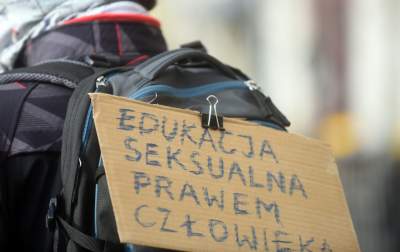 EDUKACJA
SEKSUALNA
PRAWEM
CZŁOWIEKA